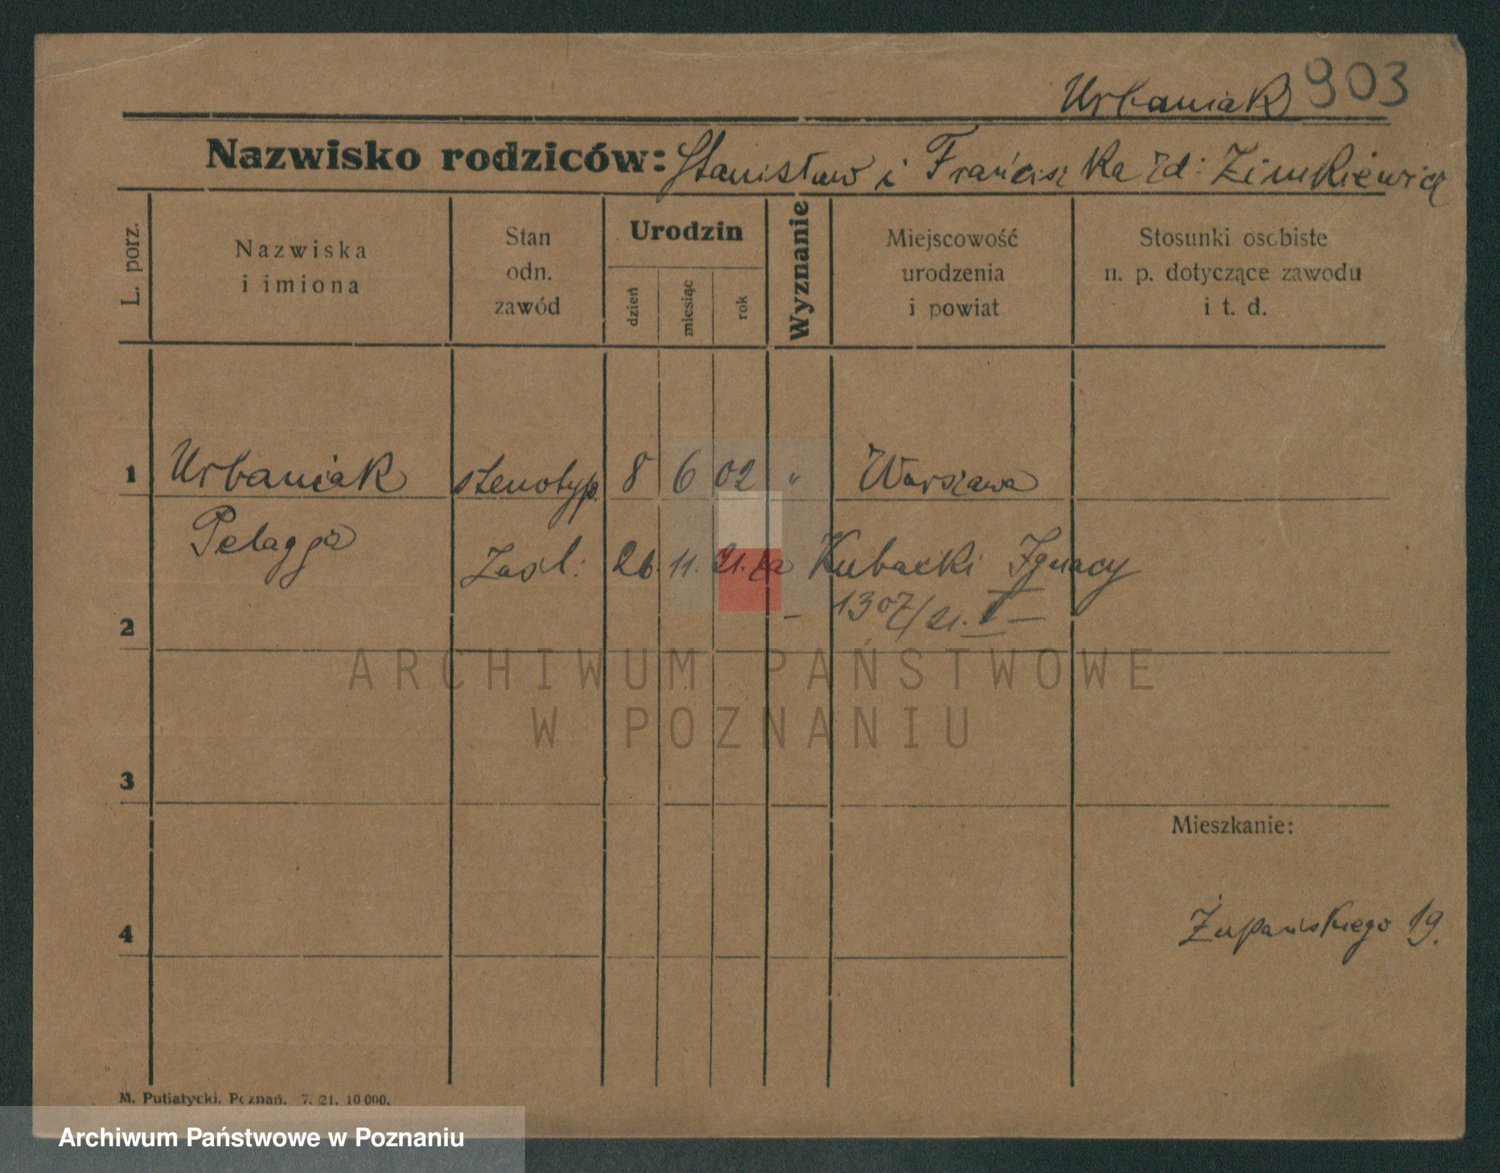 Urbaniak 903
Nazwisko rodziców: Stanisław i Franciszka zd: Zimkiewicz
L. porz.
Nazwiska
i imiona
Stan
odn.
zawód
Urodzin
dzień
miesiąc
rok
Wyznanie
Miejscowość
urodzenia
i powiat
Stosunki osobiste
n. p. dotyczące zawodu
i t. d.
1 Urbaniak stenotyp. 8 6 02 " Warszawa
Pelagja
Zaśl: 26. 11. 21. za Kubacki Ignacy
2
– 1307/21. I –
ARCHIWUM PAŃSTWOWE
W POZNANIU
3
Mieszkanie:
4 Żupańskiego 19.
M. Putiatycki. Poznań. 7. 21. 10 000.
Archiwum Państwowe w Poznaniu